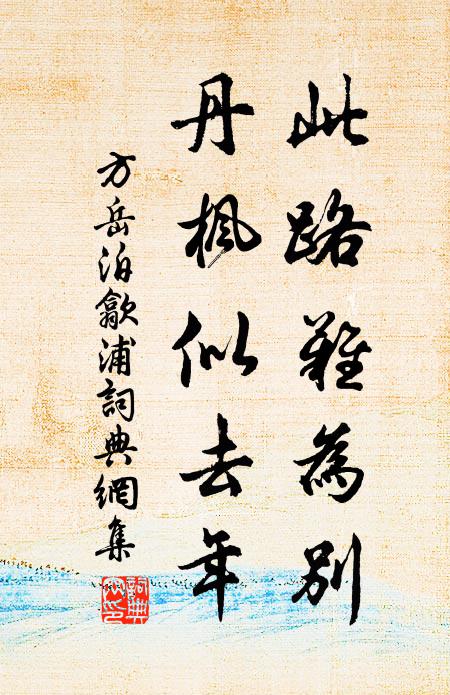 此路難為別
丹楓似去年
方岳泊歙浦詞典網集